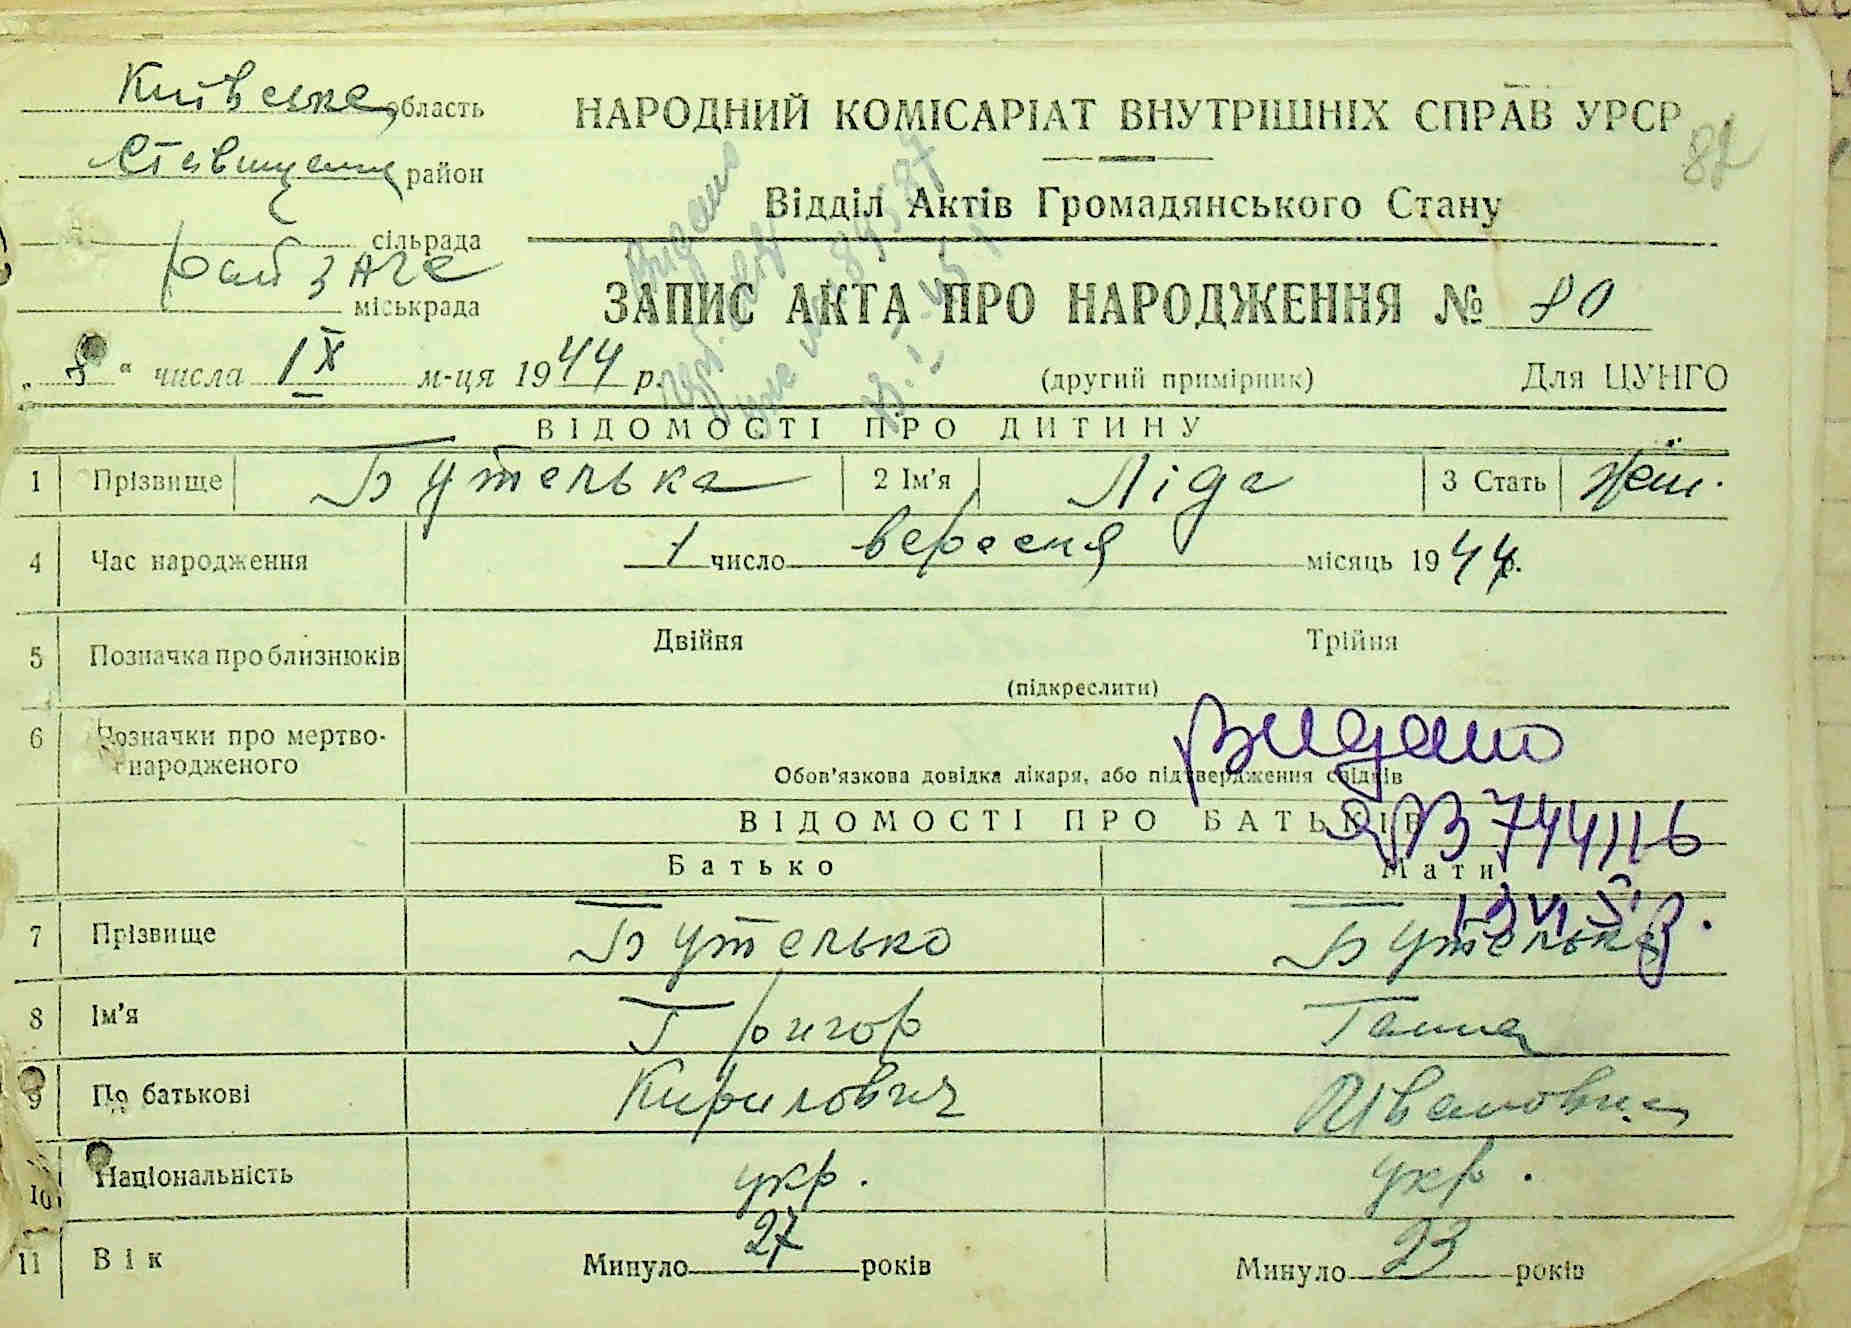 Київська область
НАРОДНИЙ КОМІСАРІАТ ВНУТРІШНІХ СПРАВ УРСР
Ставищен район
Відділ Актів Громадянського Стану
сільрада
Рай ЗАГС
міськрада
ЗАПИС АКТА ПРО НАРОДЖЕННЯ № 80
„ 8 “ числа IX м-ця 1944 р.
(другий примірник) Для ЦУНГО
ВІДОМОСТІ ПРО ДИТИНУ
1 Прізвище Бутелька 2 Ім'я Ліда 3 Стать жін.
4 Час народження 1 число вересня місяць 1944 р.
5 Позначка про близнюків Двійня Трійня
(підкреслити)
6 Позначки про мертво-
народженого
Видано
Обов'язкова довідка лікаря, або підтвердження свідків
ВІДОМОСТІ ПРО БАТЬКІВ
744116
Батько Мати
7 Прізвище Бутелько Бутелька
8 Ім'я Григор Ганна
9 По батькові Кирилович Ивановна
10 Національність укр. укр.
11 Вік Минуло 27 років Минуло 23 років